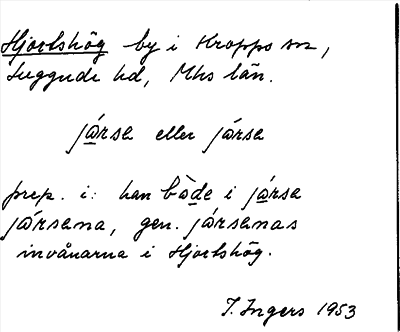 Hjortshög by i Kropps sn,
Luggude hd, Mhs län.
jársa eller jársa
prep. i: han bàde i jársa
jársana, gen. jársanas
invånarna i Hjortshög.
I. Ingers 1953